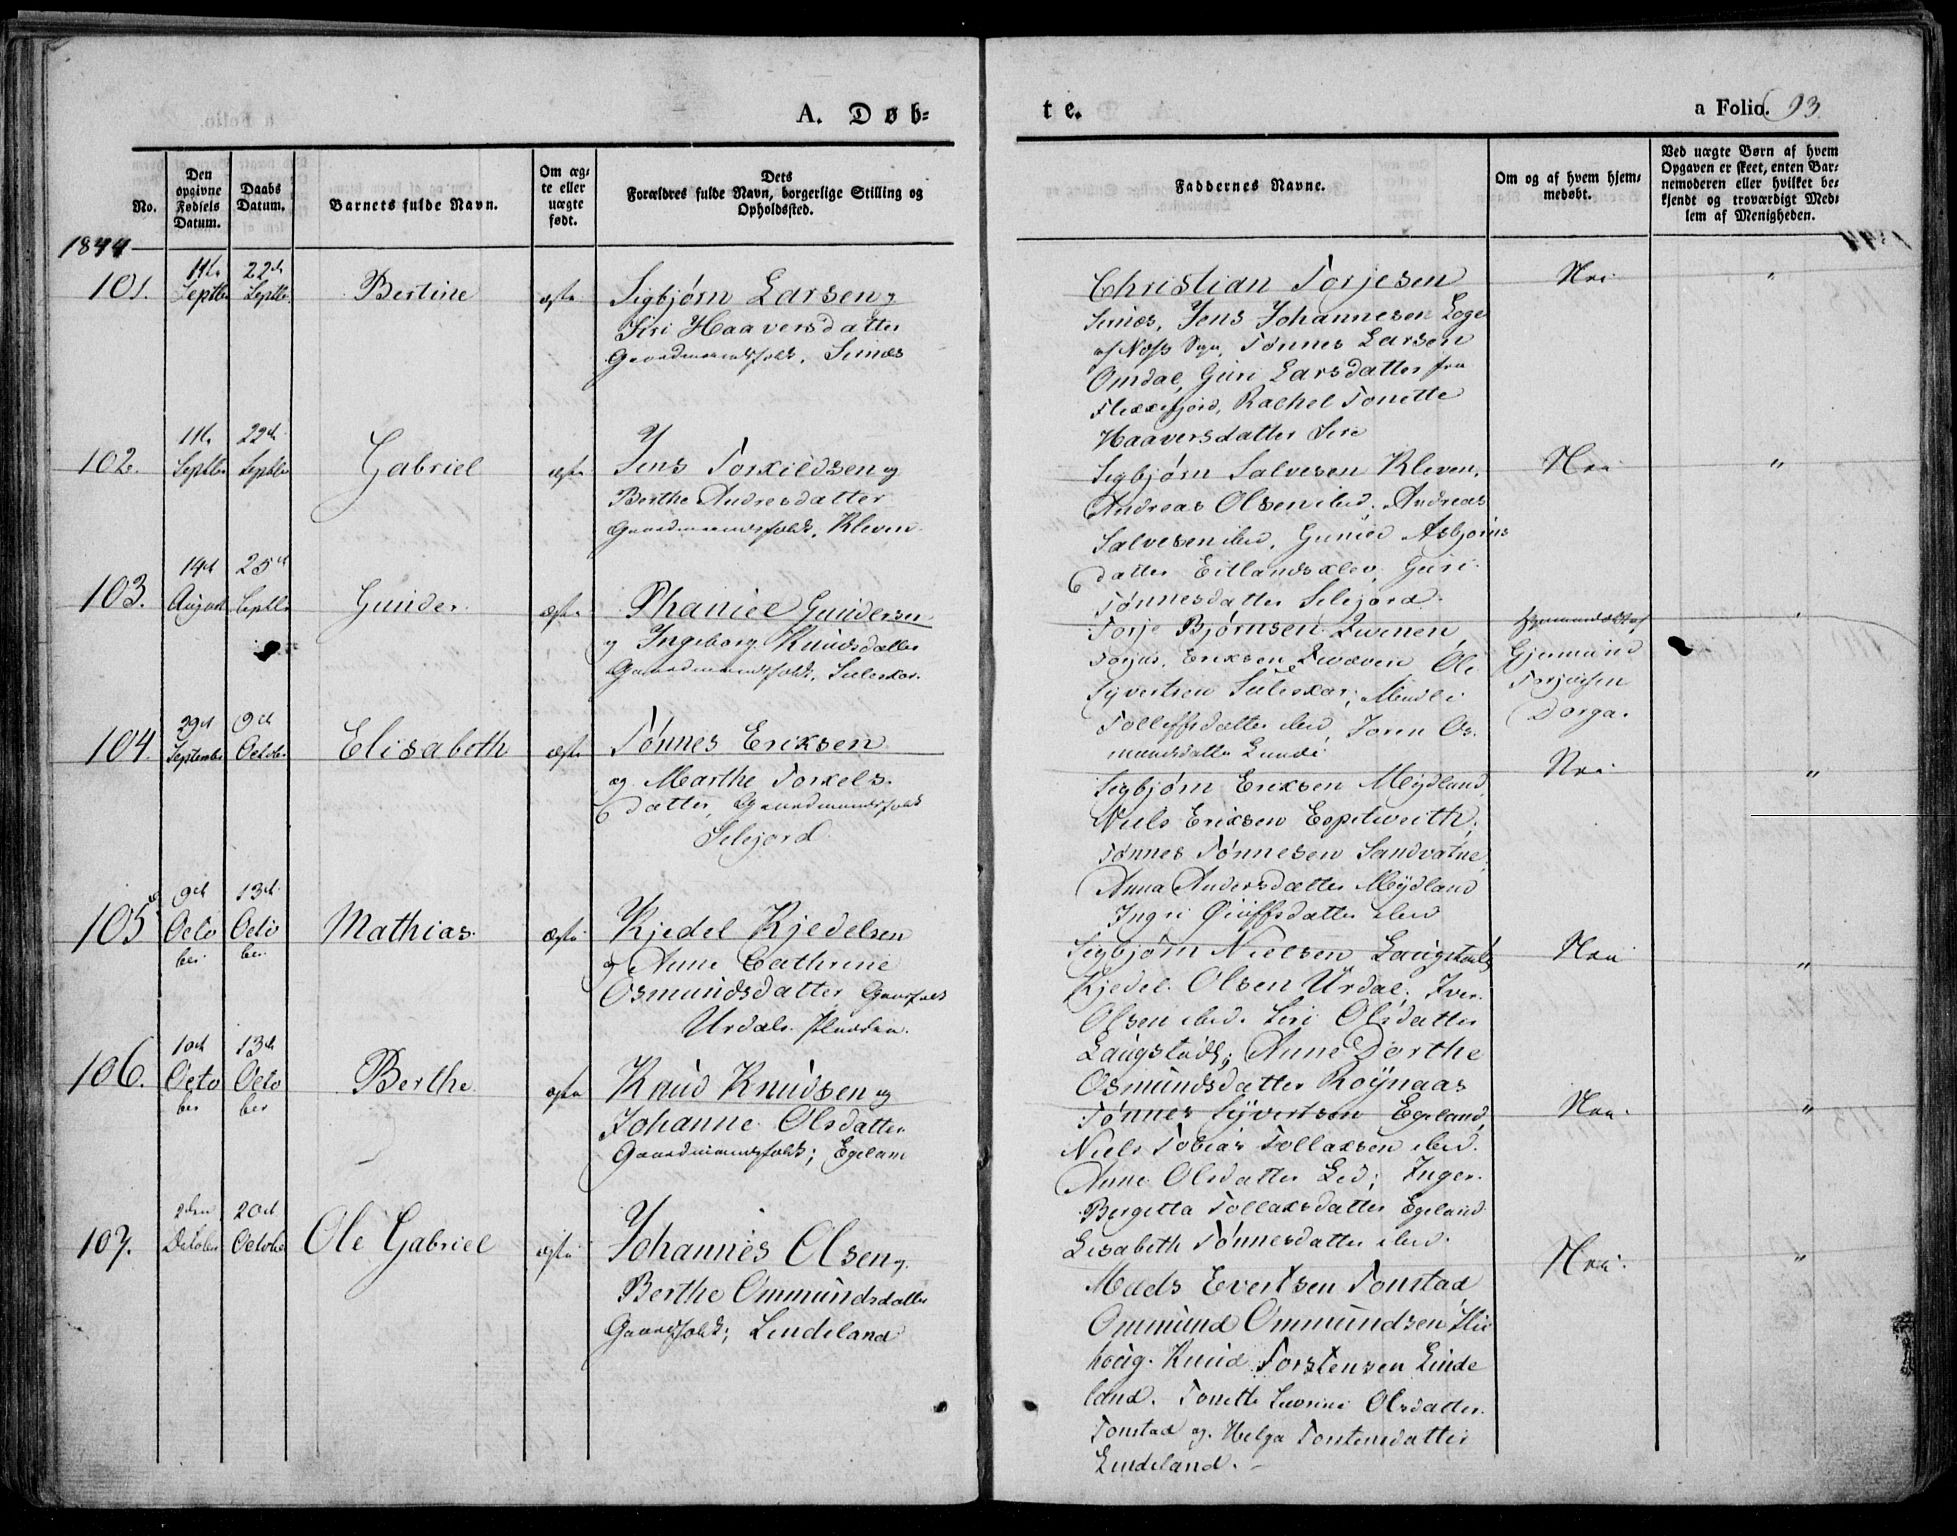 A. Døb=
te.
a Folio. 93.
No.
Den opgivne Fødsels Datum.
Daabs Datum.
Barnets fulde Navn.
Om æg- te eller uægte født.
Dets Forældres fulde Navn, borgerlige Stilling og Opholdssted.
Faddernes Navne.
Om og af hvem hjem- medøbt.
Ved uægte Børn af hvem Opgaven er skeet, enten Bar- nemoderen eller hvilket be- kjendt og troværdigt Med- lem af Menigheden.
1844
101. 11te Septbr 22de Septbr Bertine ægte Sigbjørn Larsen og
Siri Haaversdatter
Gaardmandsfolk, Sirnæs
Christian Torjesen
Sirnæs, Jens Johannesen Loge
af Næss Sogn, Tønnes Larsen
Omdal, Guri Larsdatter fra
Flekkefjord, Rachel Tonette
Haaversdatter Sire
Nei "
102. 11te Septbr 22de Septbr Gabriel ægte Jens Torkildsen og
Berthe Andreasdatter
Gaardmandsfolk, Kleven
Sigbjørn Salvesen Kleven,
Andreas Olsen ibid. Andreas
Salvesen ibid, Gunild Asbjørns
datter Eitlandsklev, Guri
Tønnesdatter Selejord.
Nei "
103. 14de August 25de Septbr Gunder ægte Thaniel Gundersen
og Ingeborg Knudsdatter
Gaardmandsfolk, Suleskar.
Torje Bjørnsen Kvinen
Torjus Eriksen Kvæven Ole
Syvertsen Suleskar,
Tollefsdatter ibid, Joren Os-
mundsdatter Lunde
Hjemmedøbt af
Gjermund
Torjusen
Dorga.
104. 29de September 9de October Elisabeth ægte Tønnes Eriksen
og Marthe Torkels-
datter, Gaardmandsfolk
Selejord
Sigbjørn Eriksen Mejdland
Niels Eriksen Espetveith,
Tønnes Tønnesen Sandvatne
Anna Andersdatter Mejdland
Ingri datter ibid
Nei "
105 9de October 13de October Mathias. ægte Kjedel Kjedelsen
og Anne Cathrine
Osmundsdatter Gaardfolk
Urdals Pladsen.
Sigbjørn Nielsen Laugstad
Kjedel Olsen Urdal, Iver
Olsen ibid. Siri Olsdatter
Laugstad; Anne Dorthe
Osmundsdatter Røynaas
Nei "
106. 10de October 13de October Berthe ægte Knud Knudsen og
Johanne Olsdatter
Gaardmandsfolk; Egeland
Tønnes Syvertsen Egeland,
Niels Tobias Tollaksen ibid.
Anne Olsdatter Led; Inger
Bergetta Tollaksdatter Egeland
Lisabeth Tønnesdatter ibid.
Nei. "
107. 2den October 20de October Ole Gabriel ægte Johannes Olsen og
Berthe Ommundsdatter
Gaardfolk; Lindeland
Mads Evertsen Tonstad
Ommund Ommundsen
houg. Knud Torstensen Linde
land. Tonette Severine Olsdatter
Tonstad og Helga Torstensdatter
Lindeland.
Nei. "